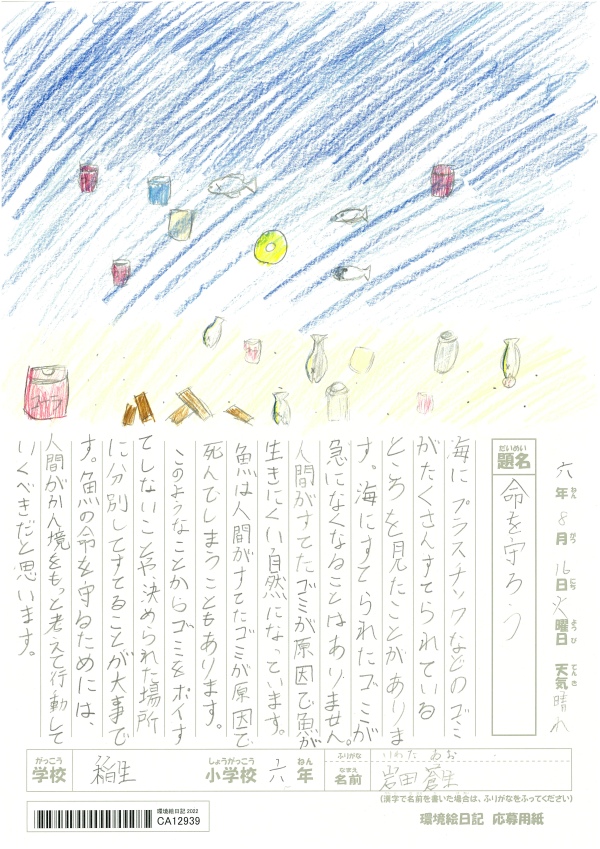 コーラ
六年8月16日火曜日 天気晴れ
ねん がつ にち ようび てんき
だいめい
題名 命を守ろう
海にプラスチックなどのゴミ
がたくさんすてられている
ところを見たことがありま
す。海にすてられたゴミが
急になくなることはありません。
人間がすてたゴミが原因で魚が
生きにくい自然になっています。
魚は人間がすてたゴミが原因で
死んでしまうこともあります。
このようなことからゴミをポイす
てしないことや、決められた場所
に分別してすてることが大事で
す。魚の命を守るためには、
人間がかん境をもっと考えて行動して
いくべきだと思います。
がっこう しょうがっこう ねん
学校 稲生 小学校 六年
ふりがな いわた あお
なまえ
名前 岩田 蒼生
(漢字で名前を書いた場合は、ふりがなをふってください)
環境絵日記 2022
CA12939
環境絵日記 応募用紙